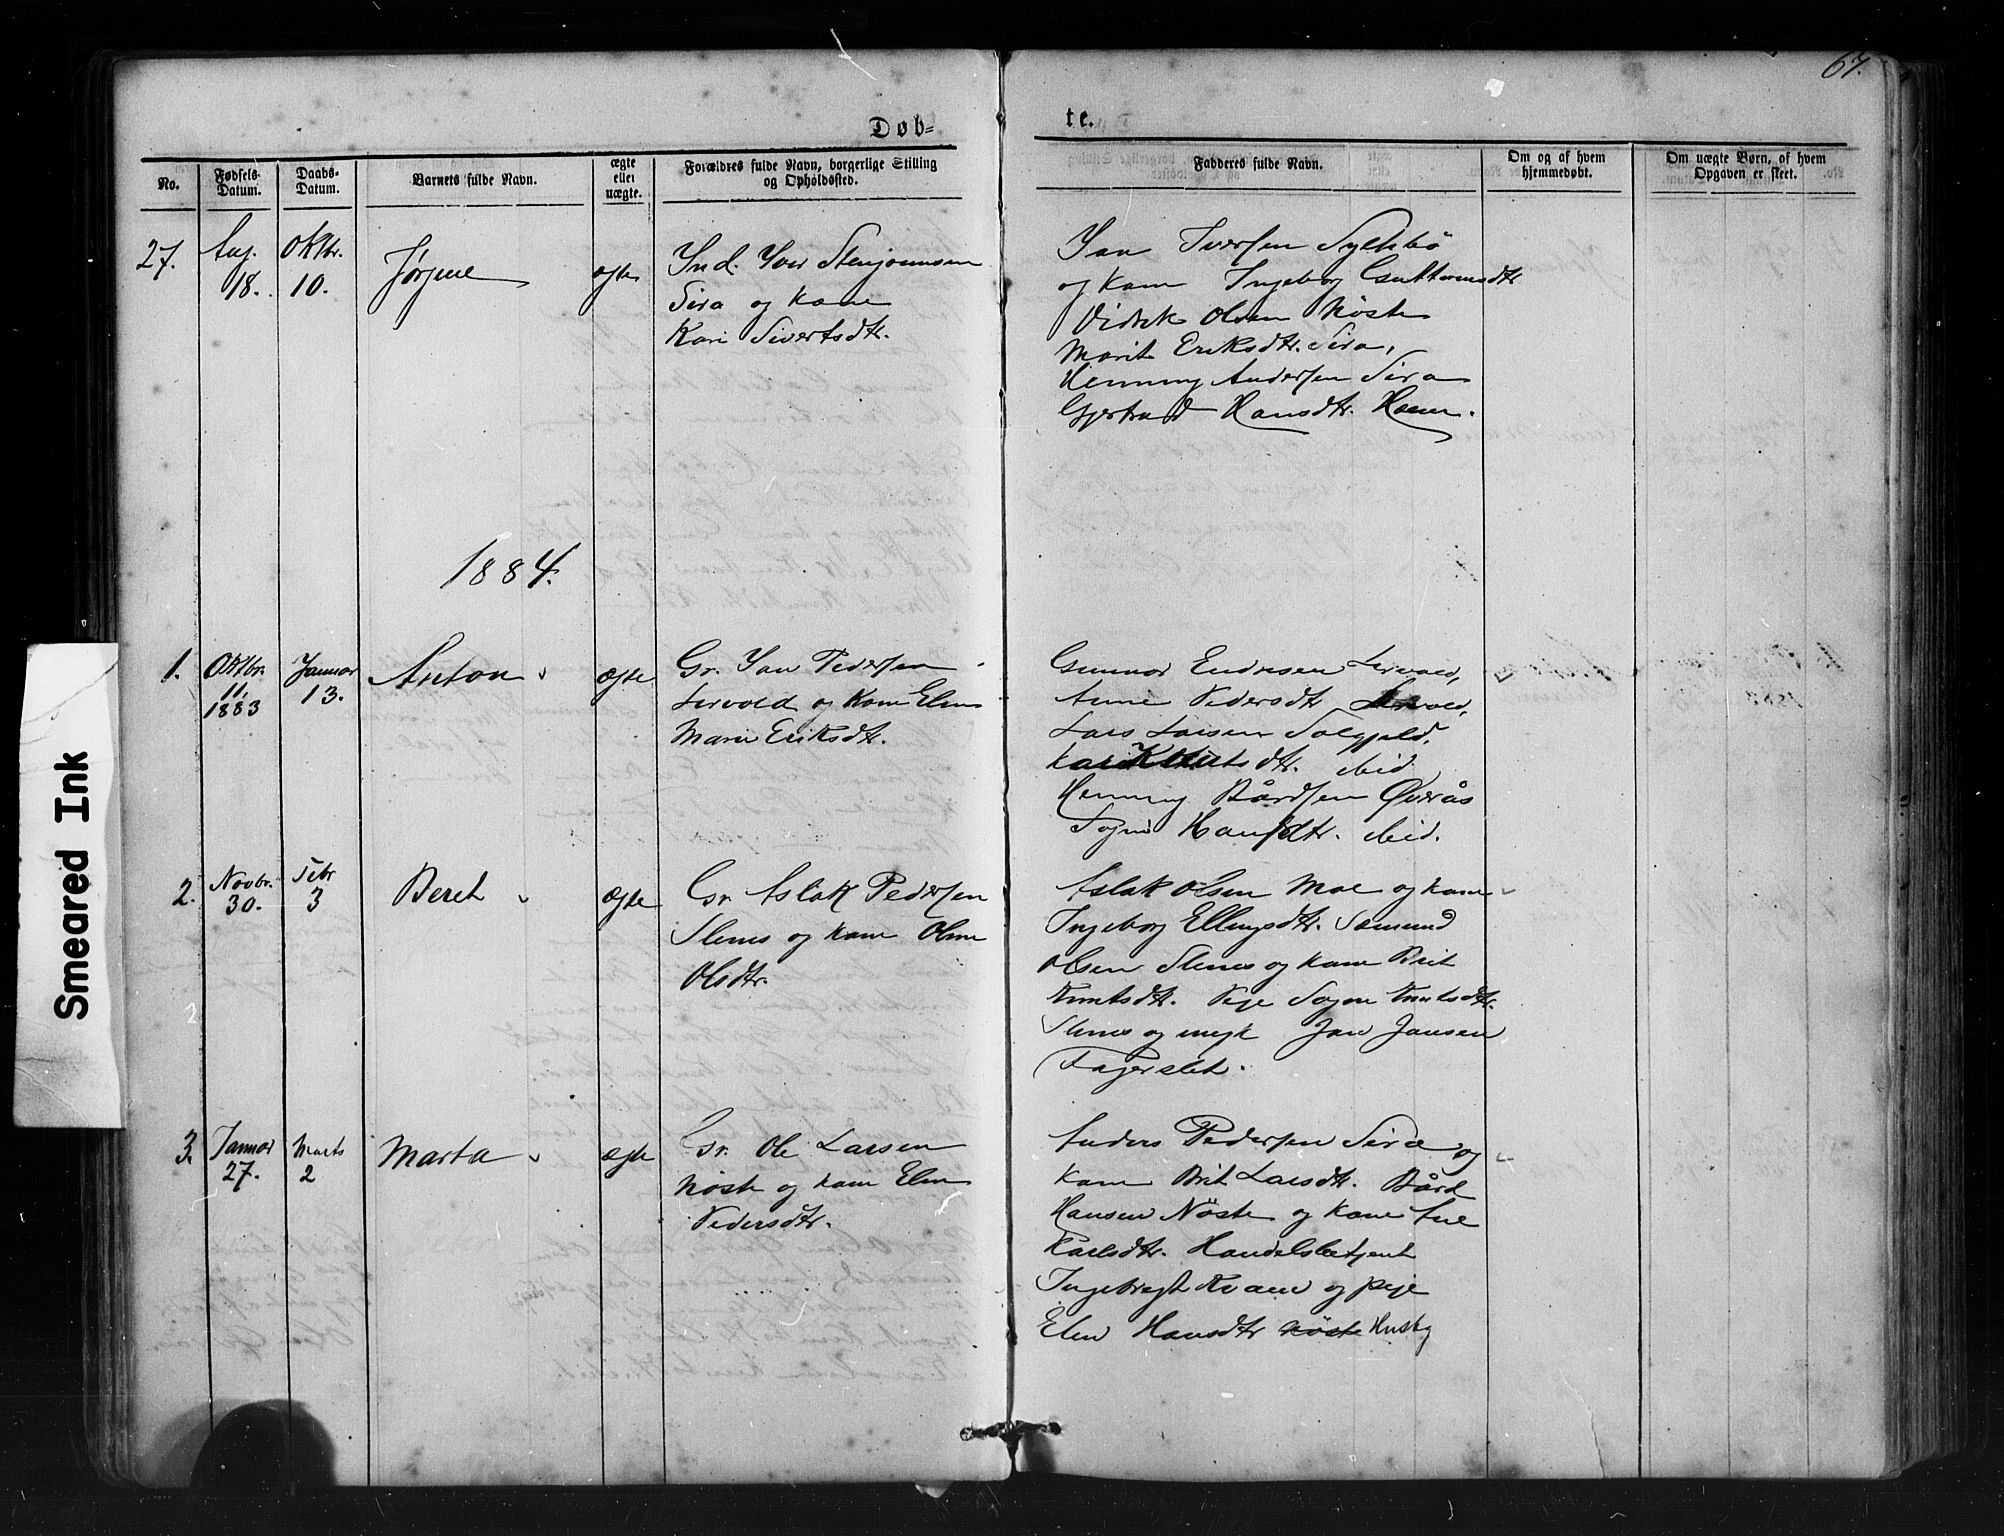 67.
Døb=
te.
No.
Fødsels-
Datum.
Daabs-
Datum.
Barnets fulde Navn.
ægte
eller
uægte.
Forældres fulde Navn, borgerlige Stilling
og Opholdssted.
Fadderes fulde Navn.
Om og af hvem
hjemmedøbt.
Om uægte Børn, af hvem
Opgaven er skeet.
27.
Aug.
18.
Oktbr.
10.
Jørgine
ægte
Ind. Iver
Sira og Kone
Kari Sivertsdtr.
Jan Iversen Sylthbø
og Kone Ingeborg Guttormsdtr
Olsen Nöste
Marit Eriksdtr. Sira,
Henning Andersen Sira
Gjertrud Hansdtr. Hoem.
1884.
1.
Oktbr.
11.
1883
Januar
13.
Anton
Ægte
Gr. Jan Pedersen
Lervold og Kone Elen
Marie Eriksdtr.
Gunnar Endresen Lervold,
Anne Pedersdtr Lervold,
Lars Larsen Solgjeld.
Kari Knutsdtr. ibid.
Henning Bårdsen Överås
Hansdtr. ibid.
2.
Novbr.
30.
Febr
3
Beret
ægte
Gr. Aslak Pedersen
Slenes og Kone Oline
Olsdtr.
Aslak Olsen Moe og Kone
Ingeborg Ellingsdtr. Samund
Olsen Slenes og Kone Brit
Knutsdtr. Pige Knutsdtr.
Slenes og Jan Jansen
Fagerslet.
3.
Januar
27.
Marts
2
Marta
ægte
Gr. Ole Larsen
Nöste og Kone Elen
Pedersdtr.
Anders Pedersen Sira og
Kone Brit Larsdtr. Bård
Hansen Nöste og Kone Ane
Karlsdtr. Handelsbetjent
Ingebregt Kvam og pige
Elen Hansdtr Nöste Husby
Smeared Ink